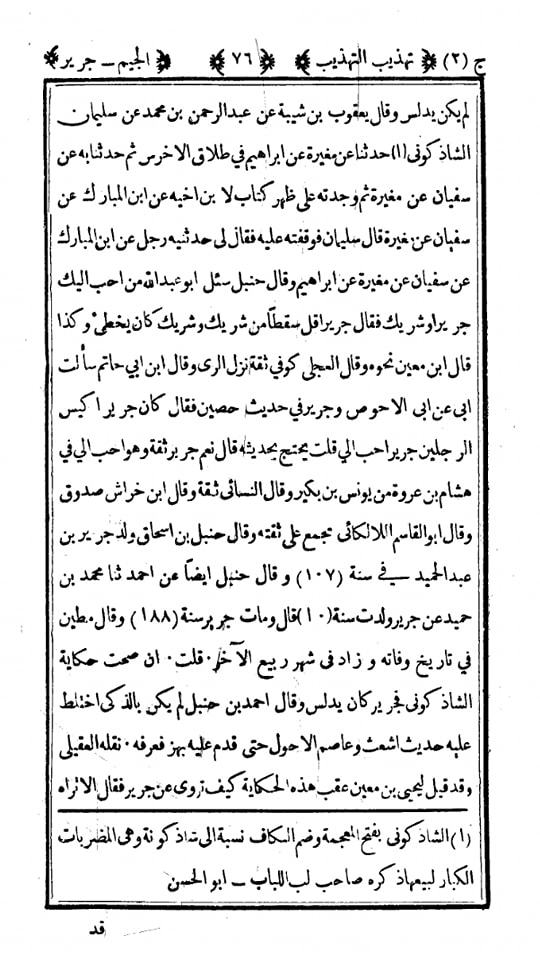 ج (٢) تهذيب التهذيب ٧٦ الجيم ـ جرير
لم يكن يدلس وقال يعقوب بن شيبة عن عبدالرحمن بن محمد عن سليمان
الشاذكونى (١) حدثنا عن مغيرة عن ابراهيم في طلاق الاخرس ثم حدثنا به عن
سفيان عن مغيرة ثم وجدته على ظهر كتاب لا بن اخيه عن ابن المبارك عن
سفيان عن مغيرة قال سليمان فوقفته عليه فقال لى حدثنيه رجل عن ابن المبارك
عن سفيان عن مغيرة عن ابراهيم وقال حنبل سئل ابو عبدالله من احب اليك
جرير او شريك فقال جرير اقل سقطاً من شريك وشريك كان يخطئ وكذا
قال ابن معين نحوه وقال العجلى كوفي ثقة نزل الرى وقال ابن ابي حاتم سألت
ابى عن ابى الاحوص وجرير في حديث حصين فقال كان جرير اكيس
الرجلين جرير احب الي قلت يحتج بحديثه قال نعم جرير ثقة وهو احب الي في
هشام بن عروة من يونس بن بكير وقال النسائى ثقة وقال ابن خراش صدوق
وقال ابو القاسم اللالكائى مجمع على ثقته وقال حنبل بن اسحاق ولد جرير بن
عبدالحميد في سنة (١٠٧) وقال حنبل ايضاً عن احمد ثنا محمد بن
حميد عن جرير ولدت سنة (١٠) قال ومات جرير سنة (١٨٨) وقال مطين
في تاريخ وفاته وزاد فى شهر ربيع الآخر · قلت · ان صحت حكاية
الشاذكونى فجرير كان يدلس وقال احمد بن حنبل لم يكن بالذكى اختلط
عليه حديث اشعث وعاصم الاحول حتى قدم عليه بهز فعرفه · نقله العقيلى
وقد قيل ليحيى بن معين عقب هذه الحكاية كيف تروى عن جرير فقال الا تراه
(١) الشاذكونى بفتح المعجمة وضم الكاف نسبة الى شاذكونة وهى المضربات
الكبار لبيعها ذكره صاحب لب اللباب ـ ابو الحسن
قد